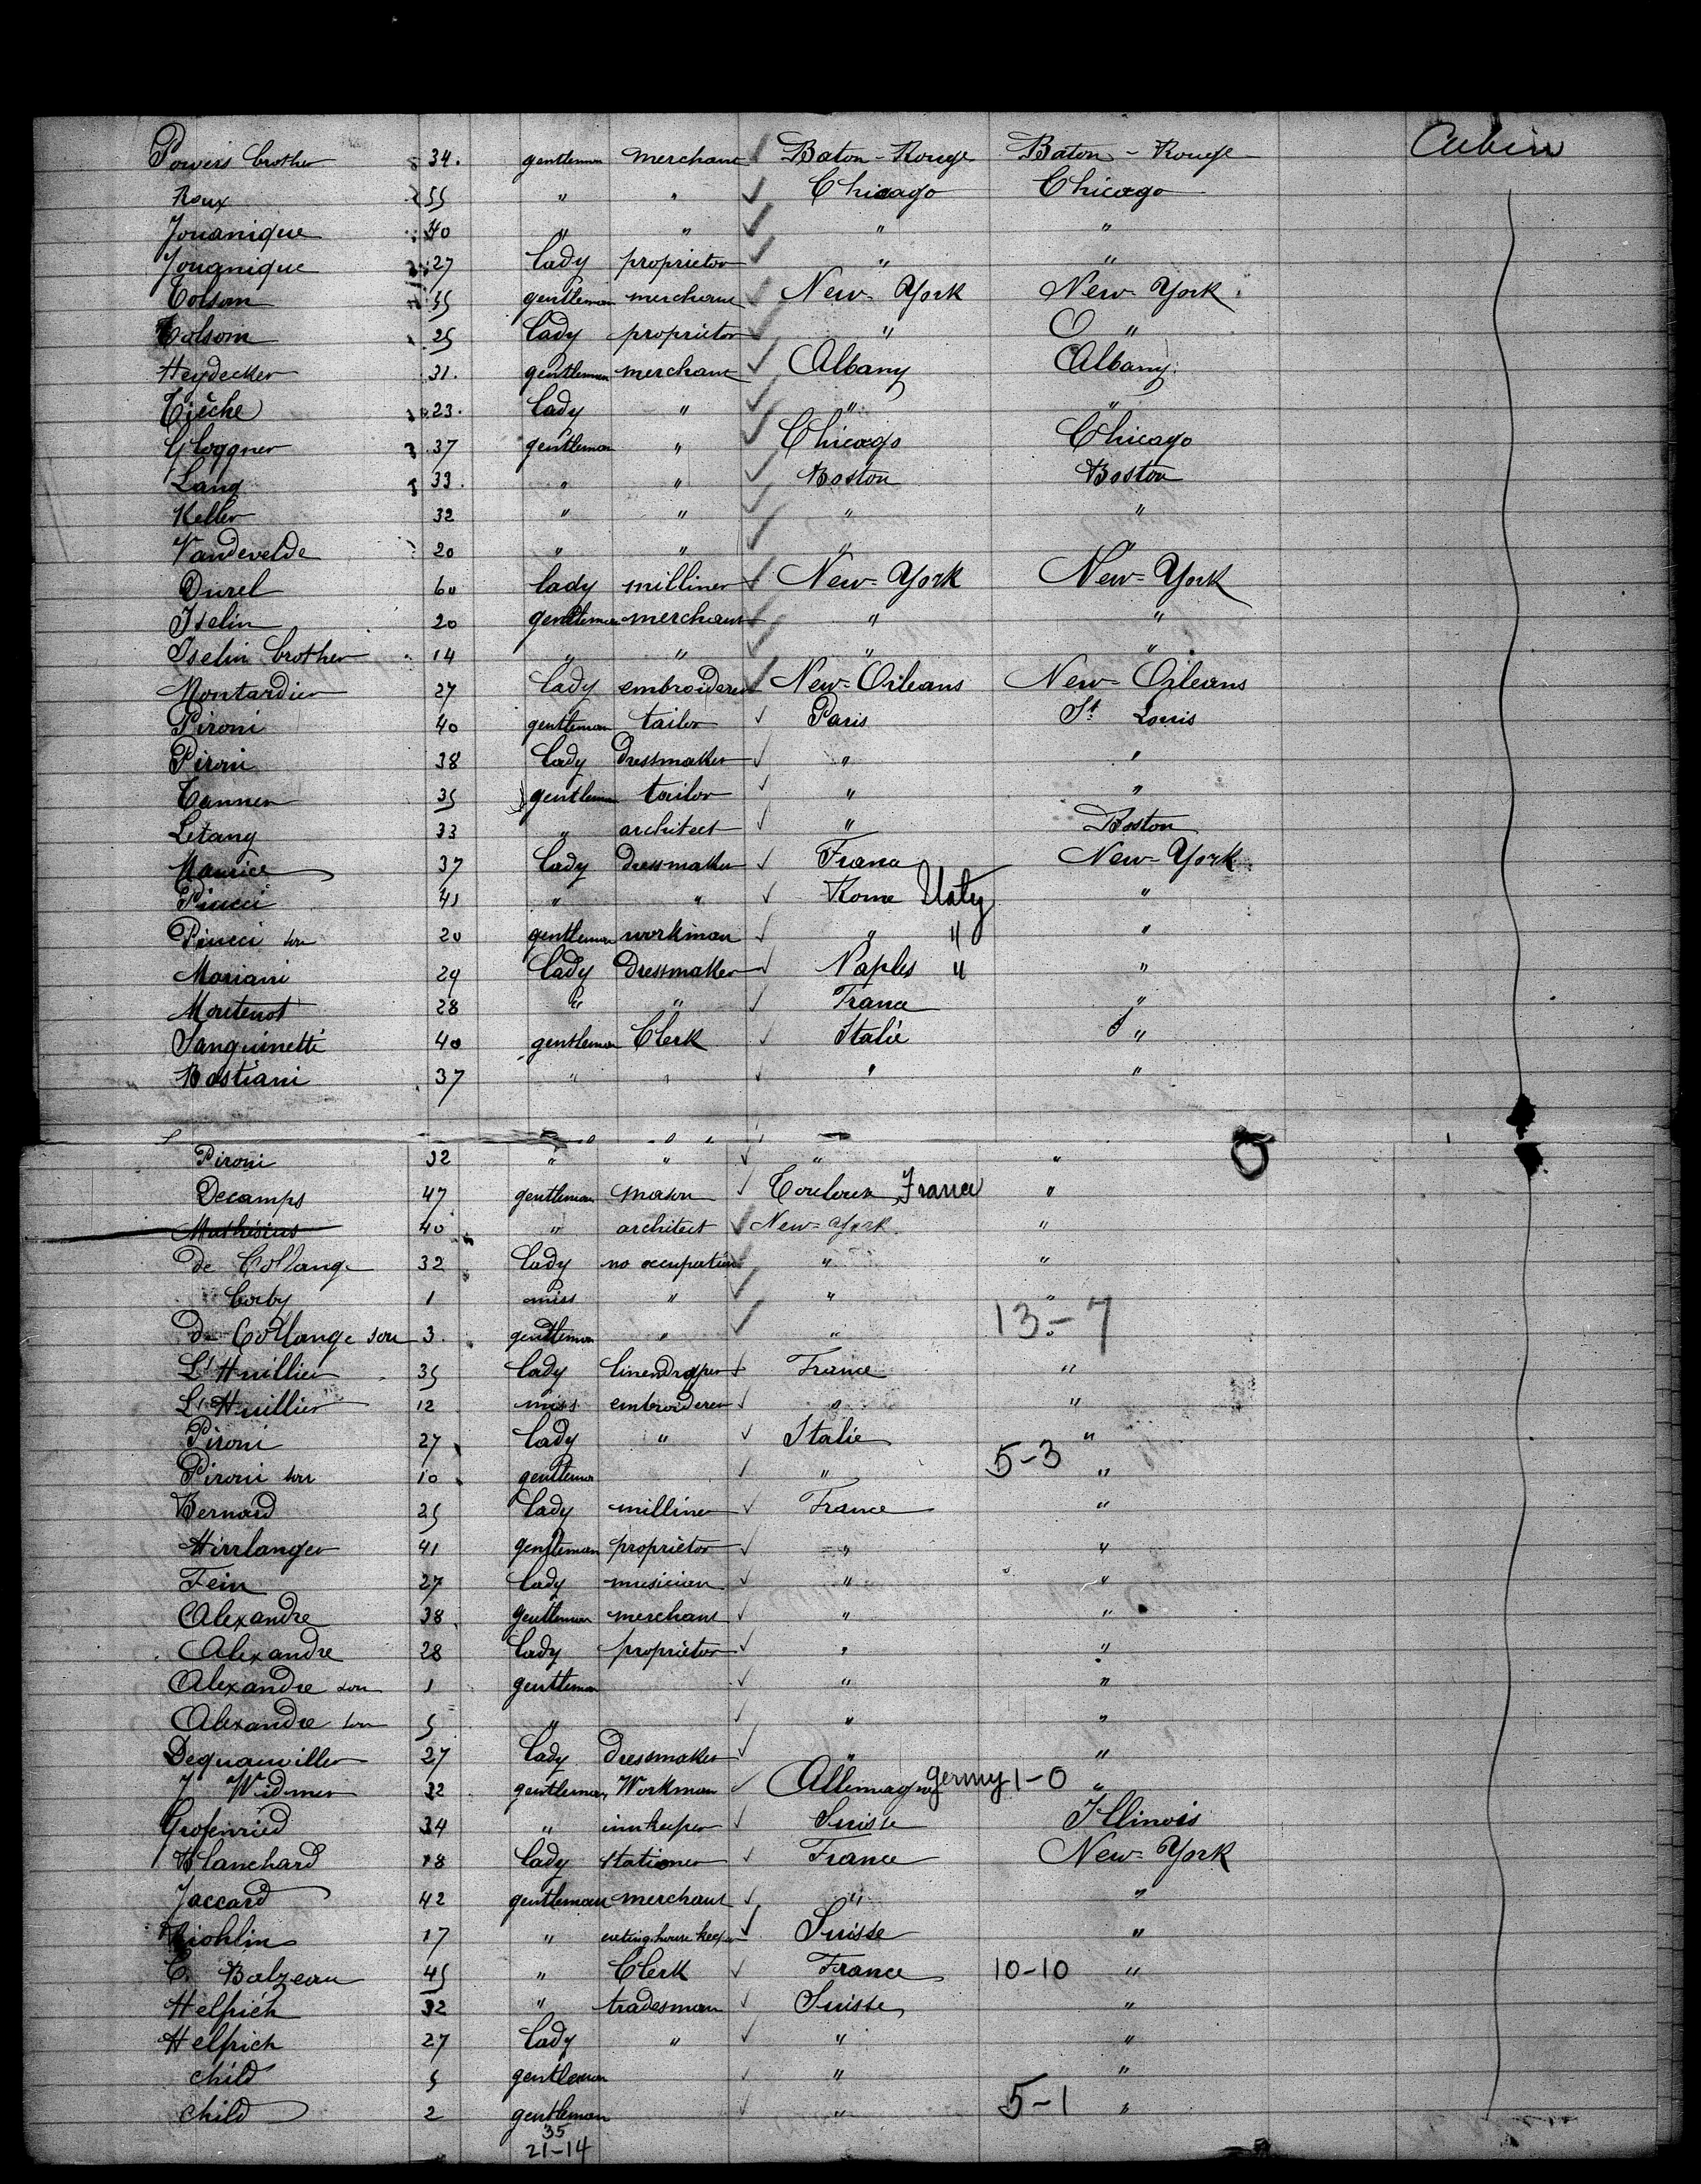 Powers brother 34. gentleman merchant Baton-Rouge Baton-Rouge Cabin
Roux 55 " " Chicago Chicago
Jouanique 40 " " " "
Jouanique 27 lady proprietor " "
Colsom 35 gentleman merchant New-York New-York
Colsom 25 lady proprietor " "
Heydecker 31. gentleman merchant Albany Albany
Tièche 23. lady " " "
Gloggner 37 gentleman " Chicago Chicago
Lang 33. " " Boston Boston
Keller 32 " " " "
Vandevelde 20 " " " "
Durel 60 lady milliner New-York New-York
Iselin 20 gentleman merchant " "
Iselin brother 14 " " " "
Montardier 27 lady embroiderer New-Orleans New-Orleans
Pironi 40 gentleman tailor Paris St Louis
Pironi 38 lady Dressmaker " "
Tanner 35 gentleman tailor " "
Letang 33 " architect " Boston
Maurice 37 lady dressmaker France New-York
Piucci 41 " " Rome Italy "
Piucci son 20 gentleman workman " " "
Mariani 29 lady Dressmaker Naples " "
Montenot 28 " " France "
Sanguinetti 40 gentleman Clerk Italie "
Bastiani 37 " " " "
Pironi 32 " " " "
Decamps 47 gentleman mason Toulouse France "
Mathésius 40 " architect New-York "
de Collange 32 lady no occupation " "
Corby 1 miss " " "
de Collange son 3. gentleman " " 13-7
L'Huillier 35 lady linendraper France "
L'Huillier 12 miss embroiderer " "
Pironi 27 lady " Italie "
Pironi son 10 gentleman " 5-3 "
Bernard 25 lady milliner France "
Hirrlanger 41 gentleman proprietor " "
Fein 27 lady musician " "
Alexandre 38 gentleman merchant " "
Alexandre 28 lady proprietor " "
Alexandre son 1 gentleman " "
Alexandre son 5 " " "
Dequauviller 27 lady Dressmaker " "
J Widmer 32 gentleman Workman Allemagne Germy 1-0 "
Grofenried 34 " innkeeper Suisse Illinois
Blanchard 18 lady stationer France New-York
Jaccard 42 gentleman merchant " "
17 " eating house keeper Suisse "
C. Balzeau 45 " Clerk France 10-10 "
Helfrich 32 " tradesman Suisse "
Helfrich 27 lady " " "
child 5 gentleman " "
child 2 gentleman " 5-1 "
35
21-14